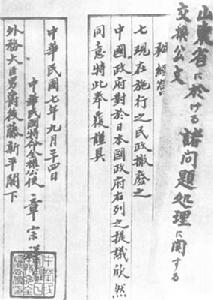 山東省に於ける諸問題処理に関する
交換公文
七現在施行之民政撤廃之
中國政府對於日本國政府右列之提議欣然
同意特此奉覆謹具
中華民國七年九月二十四日
中華民國特命全權公使章宗祥
外務大臣男爵後藤新平閣下